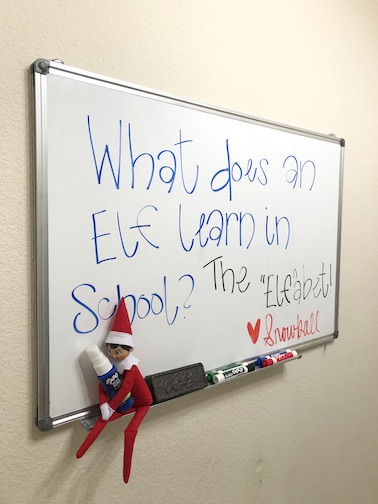 What does an
Elf learn in
School? The "Elf"abet!
♥ Snowball
EXPO